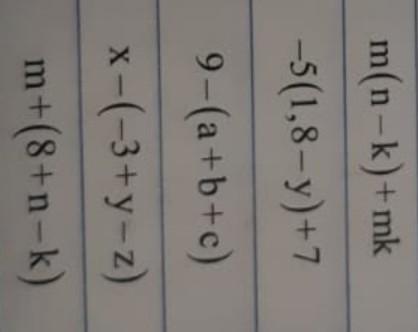 m(n−k)+mk
−5(1,8−y)+7
9−(a+b+c)
x−(−3+y−z)
m+(8+n−k)